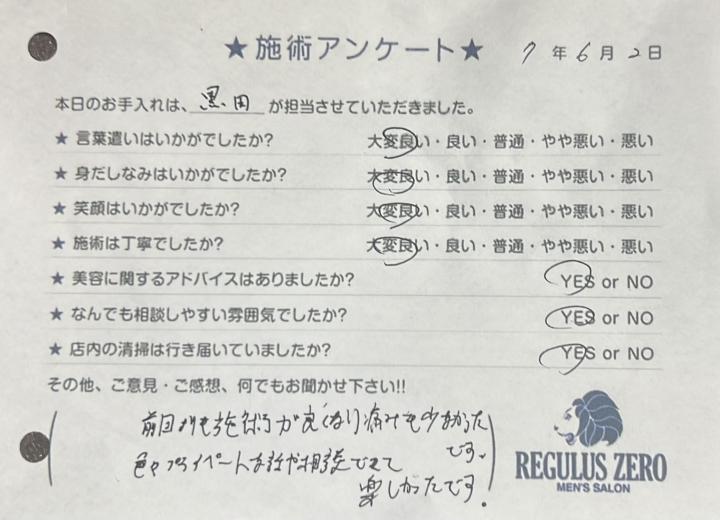 ★施術アンケート★ 7年6月2日
本日のお手入れは、黒田が担当させていただきました。
★ 言葉遣いはいかがでしたか? 大変良い・良い・普通・やや悪い・悪い
★ 身だしなみはいかがでしたか? 大変良い・良い・普通・やや悪い・悪い
★ 笑顔はいかがでしたか? 大変良い・良い・普通・やや悪い・悪い
★ 施術は丁寧でしたか? 大変良い・良い・普通・やや悪い・悪い
★ 美容に関するアドバイスはありましたか? YES or NO
★ なんでも相談しやすい雰囲気でしたか? YES or NO
★ 店内の清掃は行き届いていましたか? YES or NO
その他、ご意見・ご感想、何でもお聞かせ下さい!!
前回よりも施術が良くなり痛みも少なかった
です。
プライベートな話や相談できて
楽しかったです。
REGULUS ZERO
MEN'S SALON